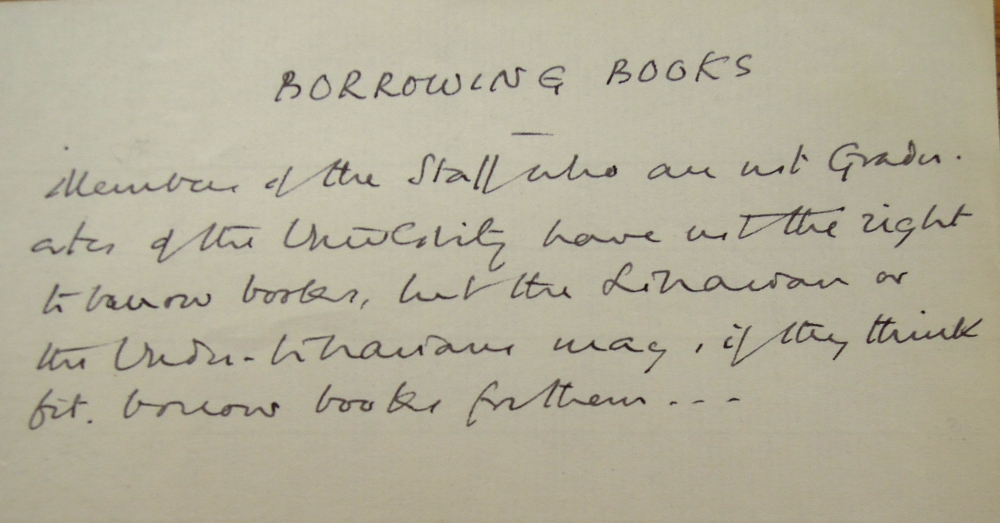 BORROWING BOOKS
Members of the Staff who are not Gradu-
ates of the University have not the right
to borrow books, but the Librarian or
the Under-Librarians may, if they think
fit. borrow books for them ---